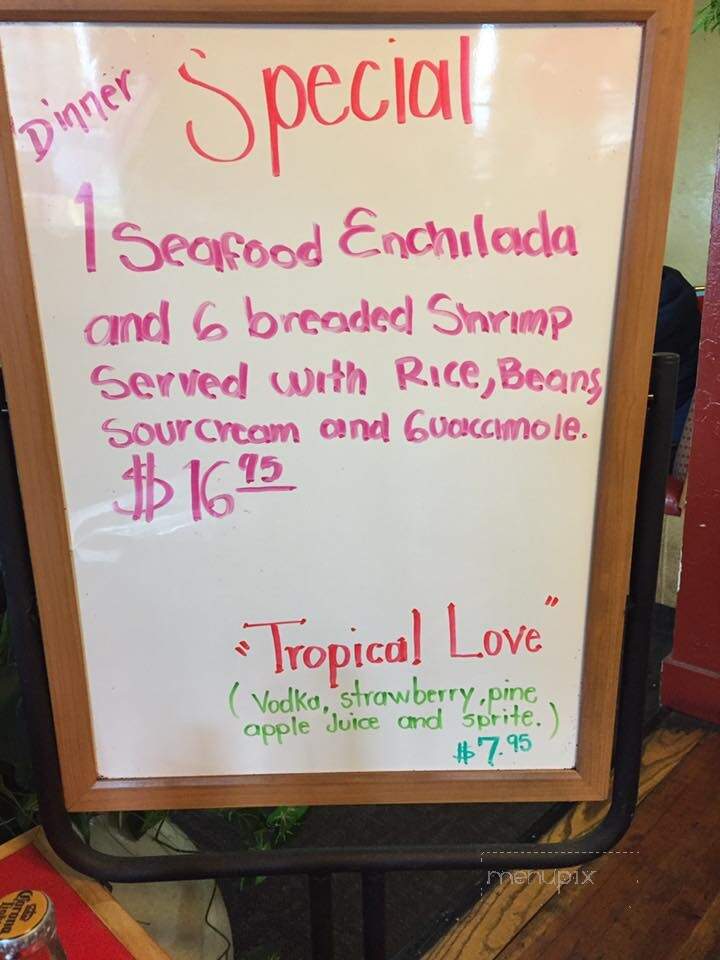 Dinner Special
1 Seafood Enchilada
and 6 breaded Shrimp
Served with Rice, Beans,
Sour cream and Guacamole.
$16.95
"Tropical Love"
(Vodka, strawberry, pine
apple Juice and sprite.)
$7.95
menupix
Corona